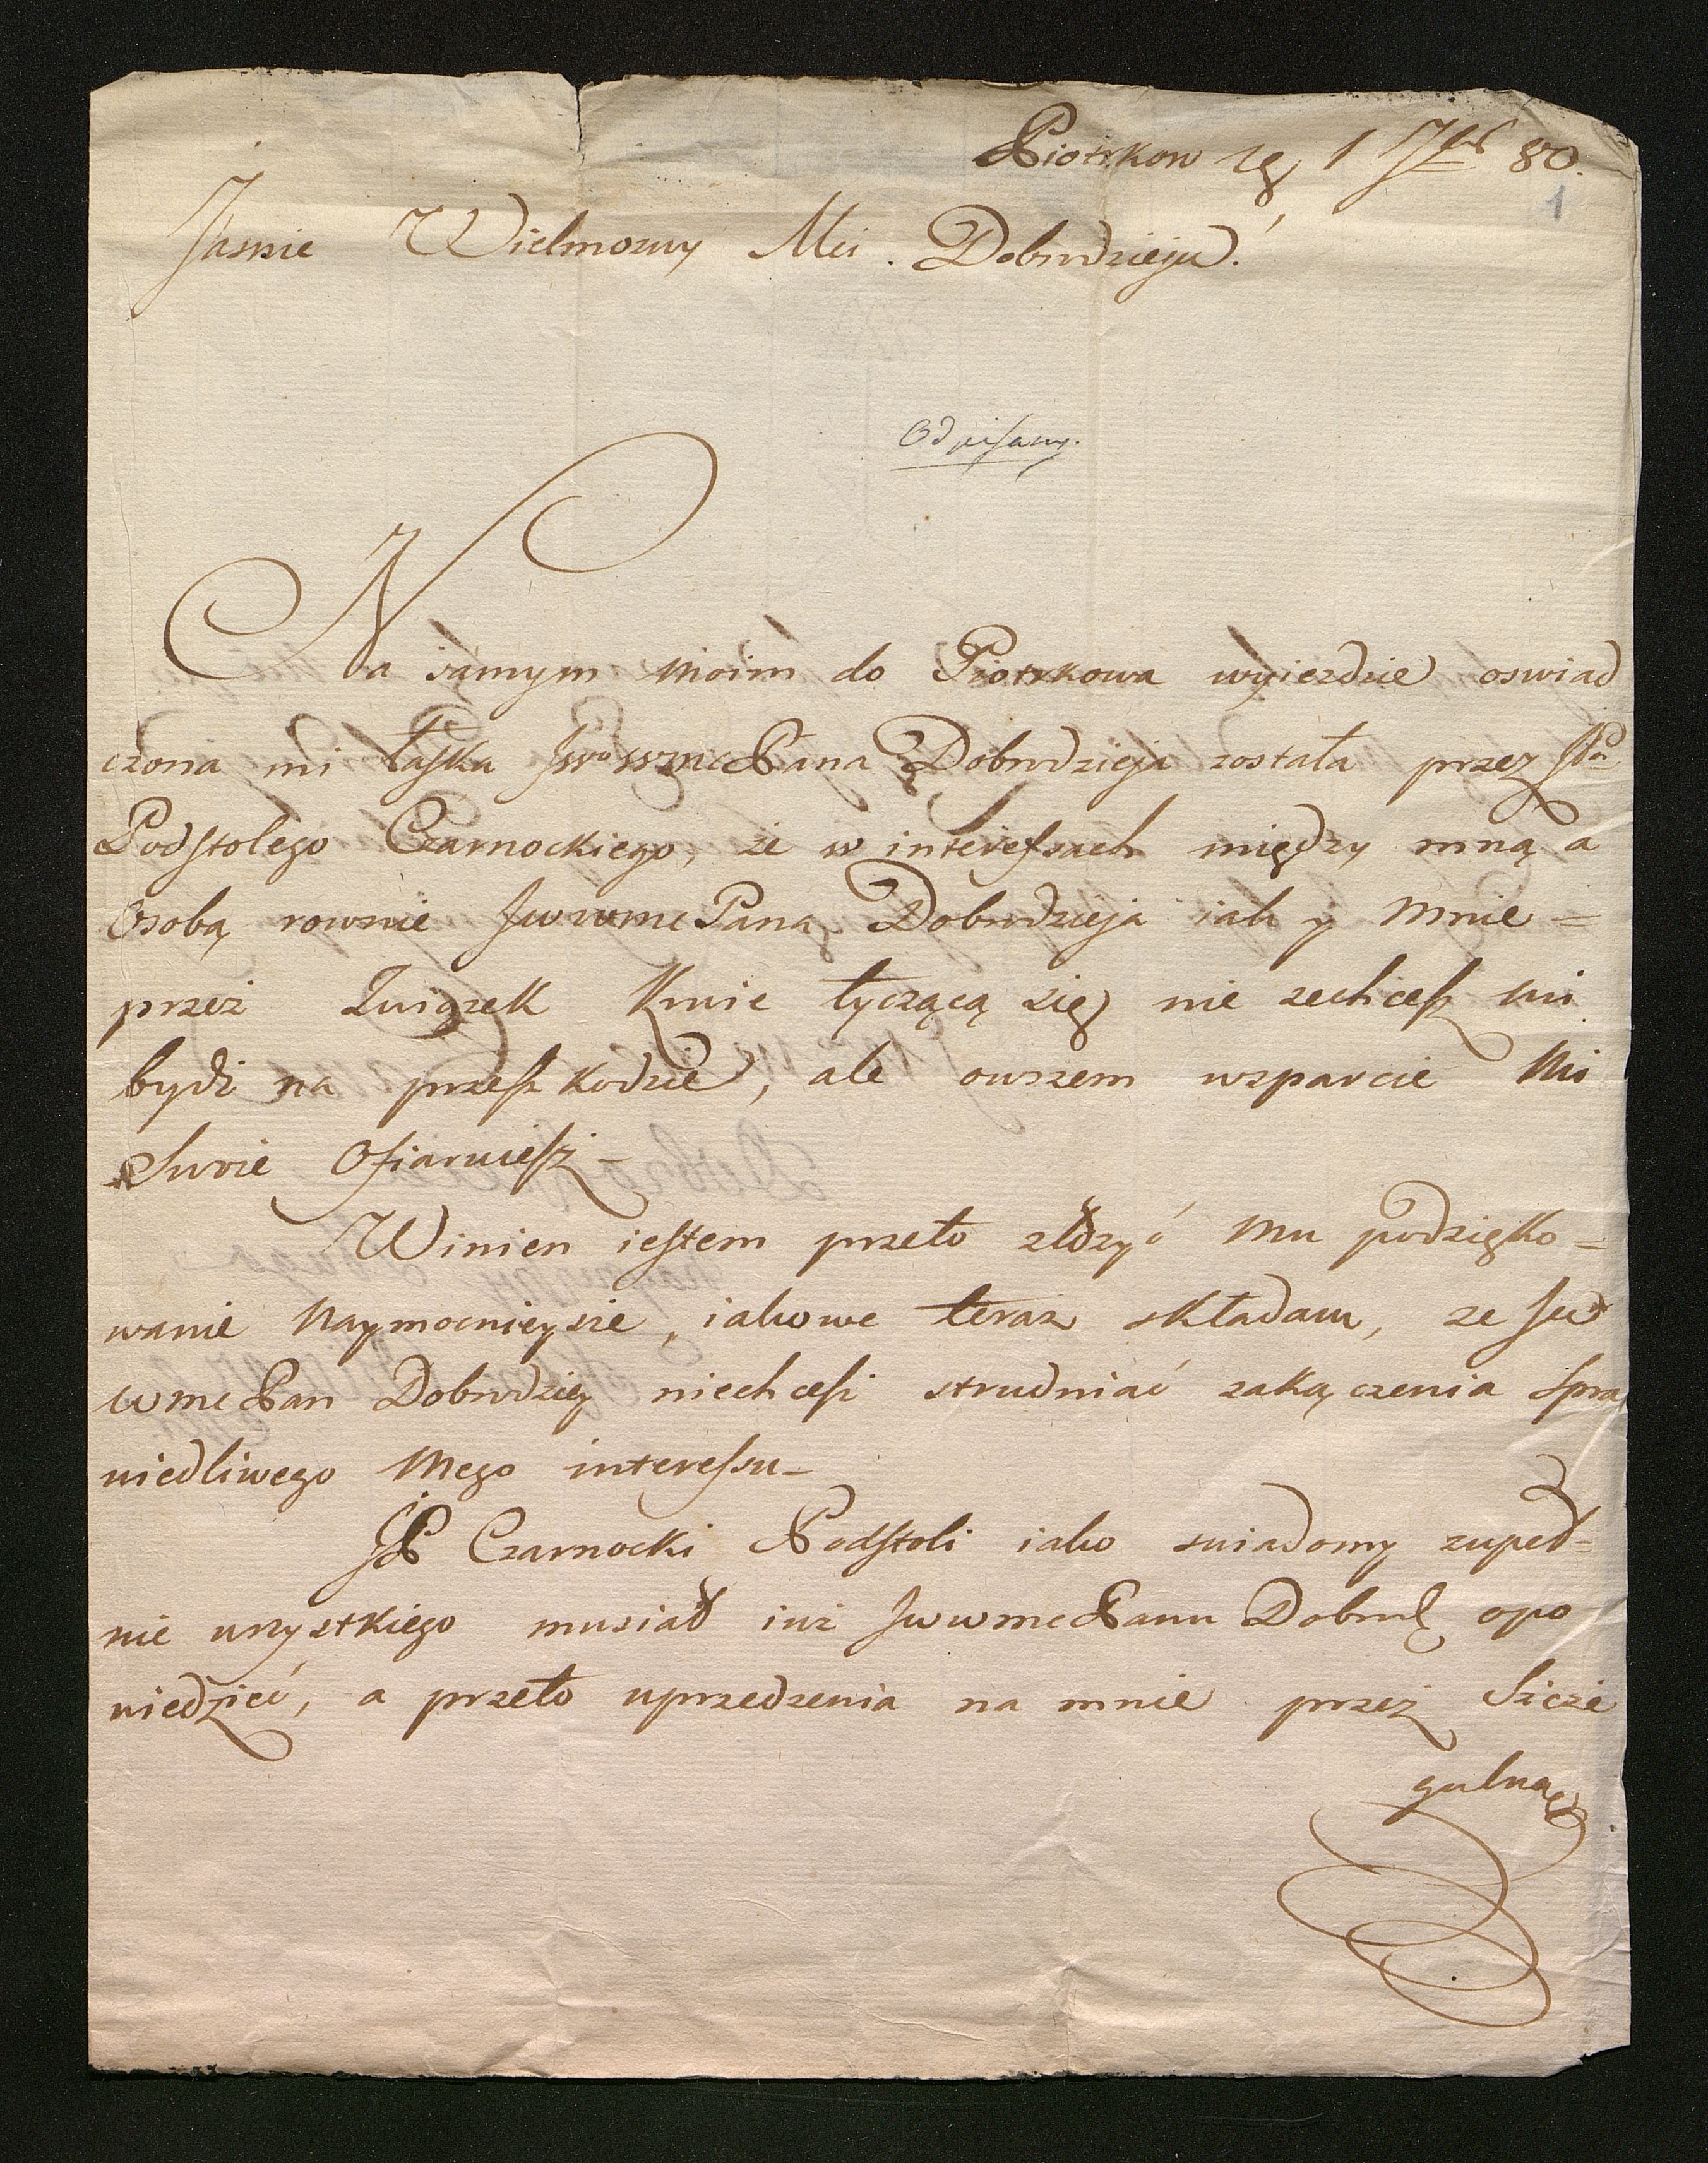 Piotrkow 1 7bris 80.
1
Jasnie Wielmozny Mci Dobrodzieju!
Odpisany.
Na samym moim do Piotrkowa wyiezdzie oswiad
czona mi Łaska JWo WMcPana Dobrodzieja została przez JPa
Podstolego Czarnockiego, że w interessach między mną a
Osobą rownie JWWMcPana Dobrodzieja iak y mnie =
przez Związek Krwie tyczącą się nie zechcesz mi
bydź na przeszkodzie, ale owszem wsparcie mi
Swoie Ofiaruiesz –
Winien iestem przeto złożyć Mu podzięko =
wanie naymocnieysze, iakowe teraz składam, ze JW
WMcPan Dobrodziey niechcesz strudniać zakączenia Spra
wiedliwego Mego interessu –
JP Czarnocki Podstoli iako swiadomy zupeł =
nie wszystkiego musiał iuż JWWMcPanu Dobrod opo
wiedzieć, a przeto uprzedzenia na mnie przez Szcze
gulną